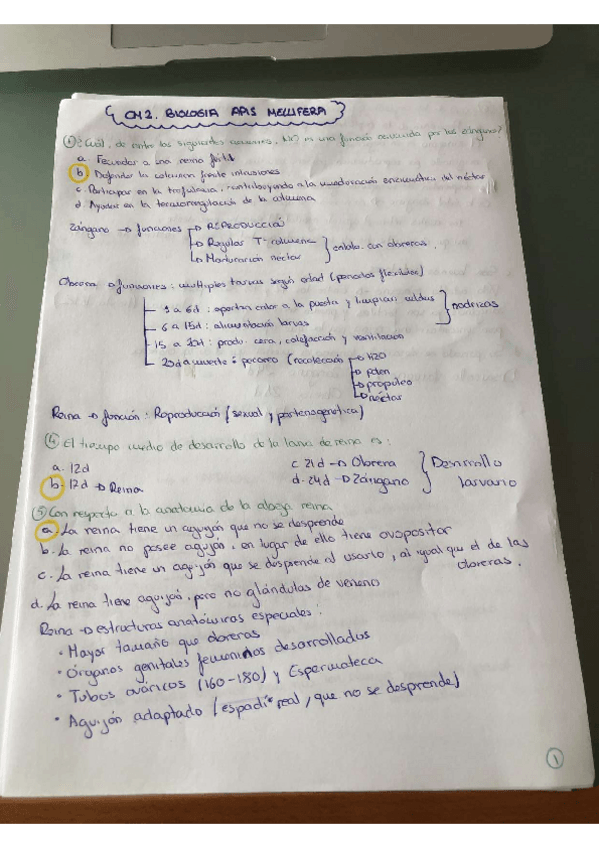 CM2. BIOLOGIA APIS MELLIFERA
① ¿Cuál, de entre las siguientes acciones, NO es una función realizada por los zánganos?
a. Fecundar a una reina fértil
b. Defender la colmena frente intrusiones
c. Participar en la trofalaxia, contribuyendo a la maduración enzimática del néctar
d. Ayudar en la termorregulación de la colmena
Zángano → funciones → REPRODUCCIÓN
→ Regular Tª colmena
→ Maduración néctar
} en colab. con obreras.
Obrera → funciones: múltiples tareas según edad (periodos flexibles)
1 a 6d: aportan calor a la puesta y limpian celdas
6 a 15d: alimentación larvas
} nodrizas
15 a 20d: produc. cera, calefacción y ventilación
20d a muerte: pecoreo (recolección → H2O
→ polen
→ propóleo
→ néctar
Reina → función: Reproducción (sexual y partenogenética)
④ El tiempo medio de desarrollo de la larva de reina es:
a. 12d c. 21d → Obrera
b. 12d → Reina d. 24d → Zángano
} Desarrollo larvario
⑤ Con respecto a la anatomía de la abeja reina
a. La reina tiene un aguijón que no se desprende
b. La reina no posee aguijón, en lugar de ello tiene ovopositor
c. La reina tiene un aguijón que se desprende al usarlo, al igual que el de las obreras.
d. La reina tiene aguijón, pero no glándulas de veneno
Reina → estructuras anatómicas especiales:
· Mayor tamaño que obreras
· Órganos genitales femeninos desarrollados
· Tubos ováricos (160-180) y Espermateca
· Aguijón adaptado (espadín real, que no se desprende)
1